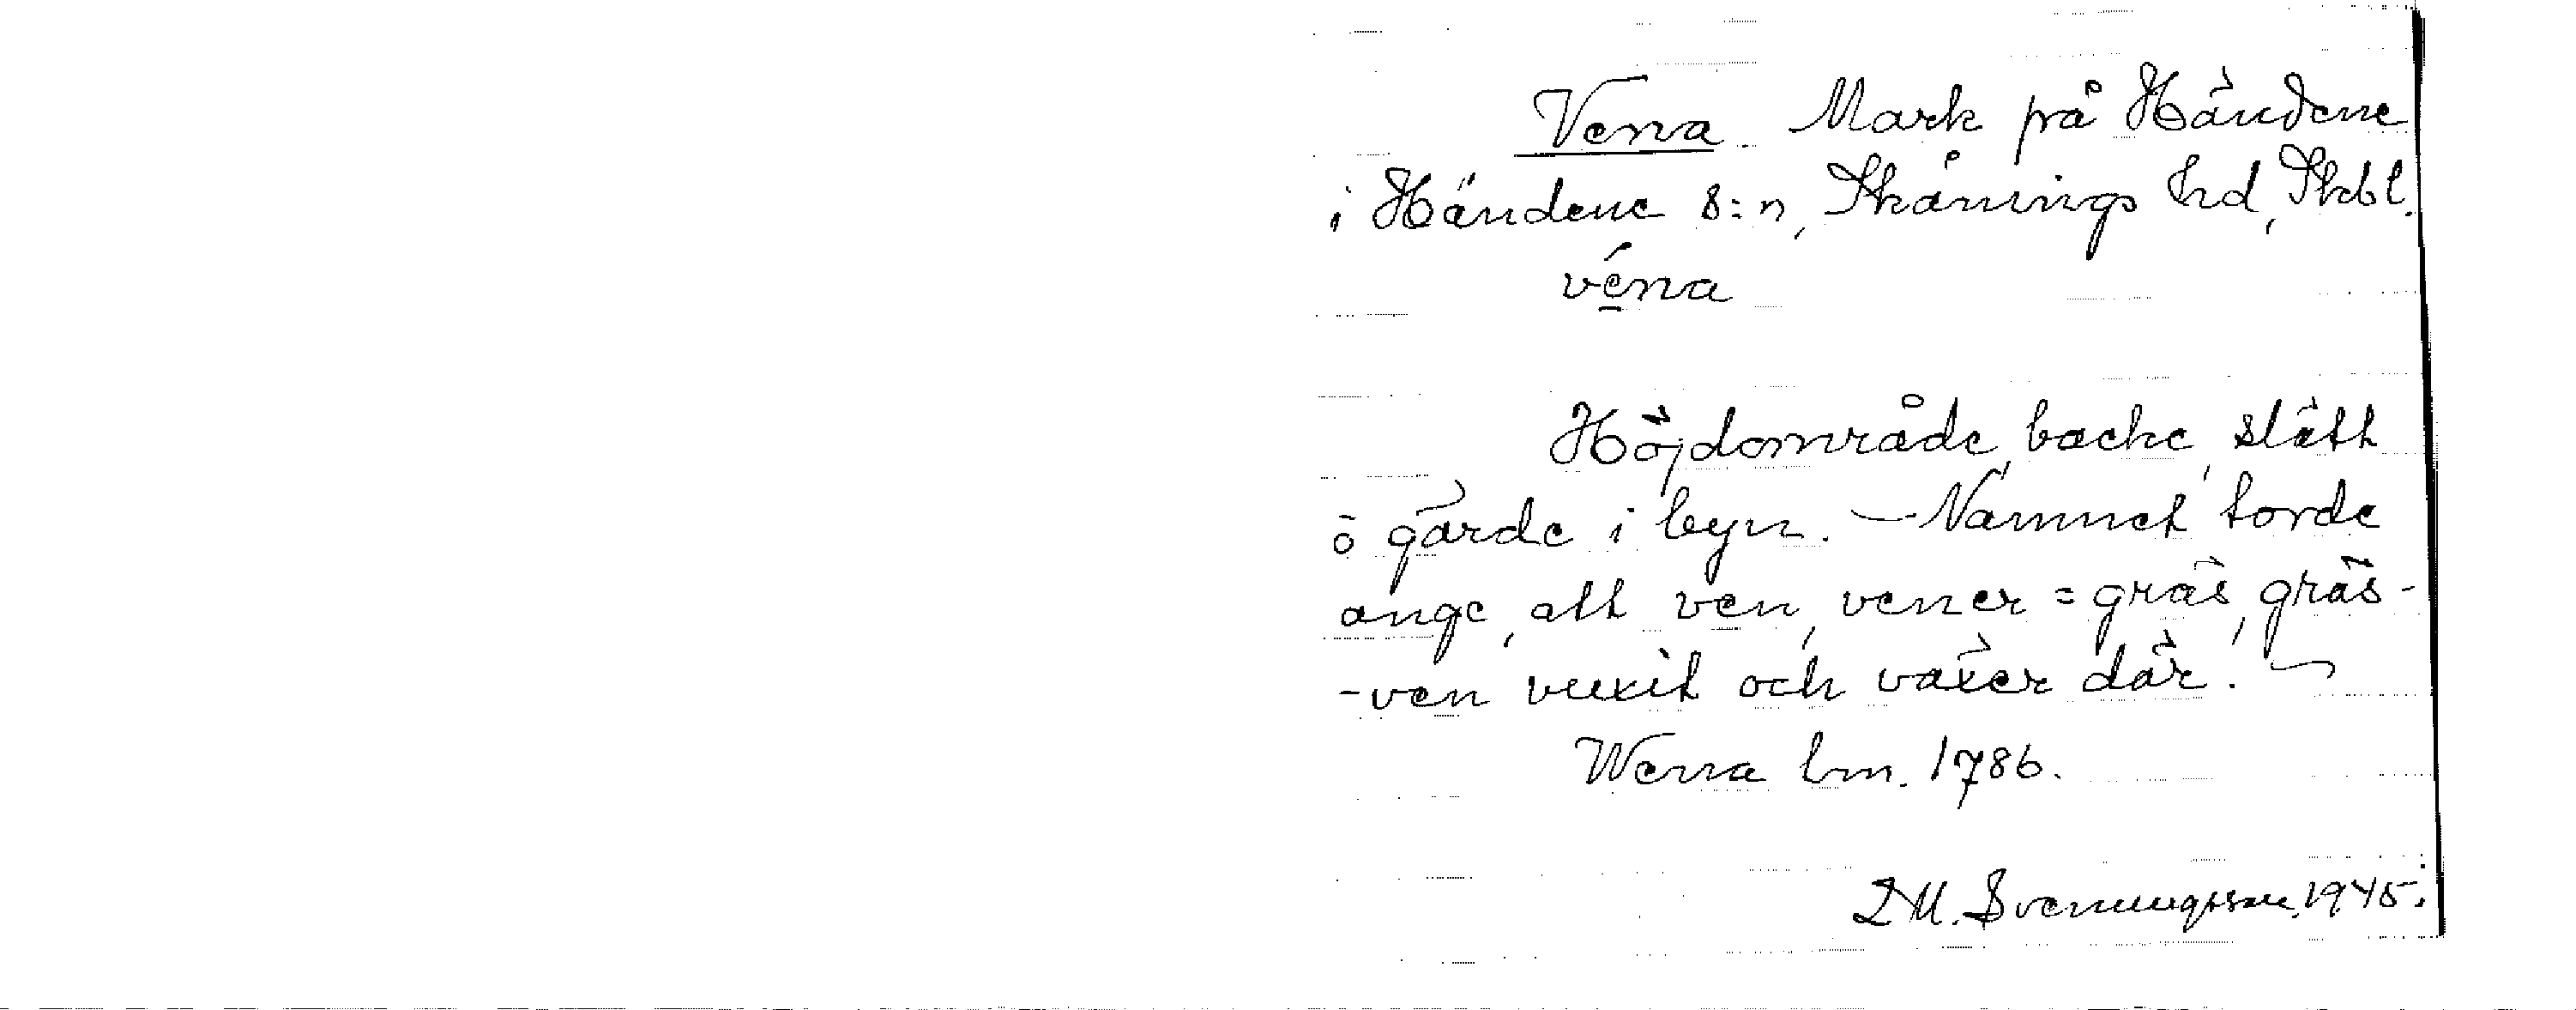 Vena Mark på Händene
i Händene s:n, Skånings hd, Skbl.
véna
Höjdområde, backe, slätt
ö gärde i byn. — Namnet torde
ange, att ven, vener = gräs, gräs-
-ven vuxit och växer där. —
Wena lm. 1786.
LM. Svenungsson. 1945.